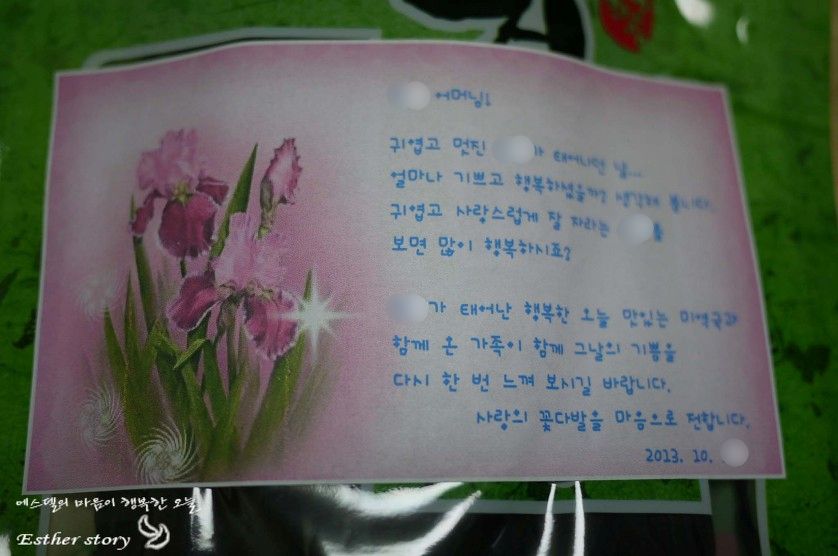 어머니!
귀엽고 멋진 가 태어나던 날...
얼마나 기쁘고 행복하셨을까? 생각해 봅니다.
귀엽고 사랑스럽게 잘 자라는 를
보면 많이 행복하시죠?
가 태어난 행복한 오늘 맛있는 미역국과
함께 온 가족이 함께 그날의 기쁨을
다시 한 번 느껴 보시길 바랍니다.
사랑의 꽃다발을 마음으로 전합니다.
2013. 10.
에스델의 마음이 행복한 오늘
Esther story